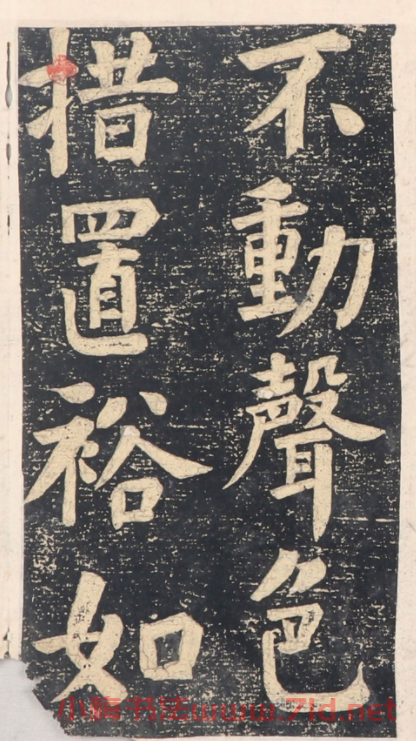 不動聲色
措置裕如
小隋书法www.7ld.net